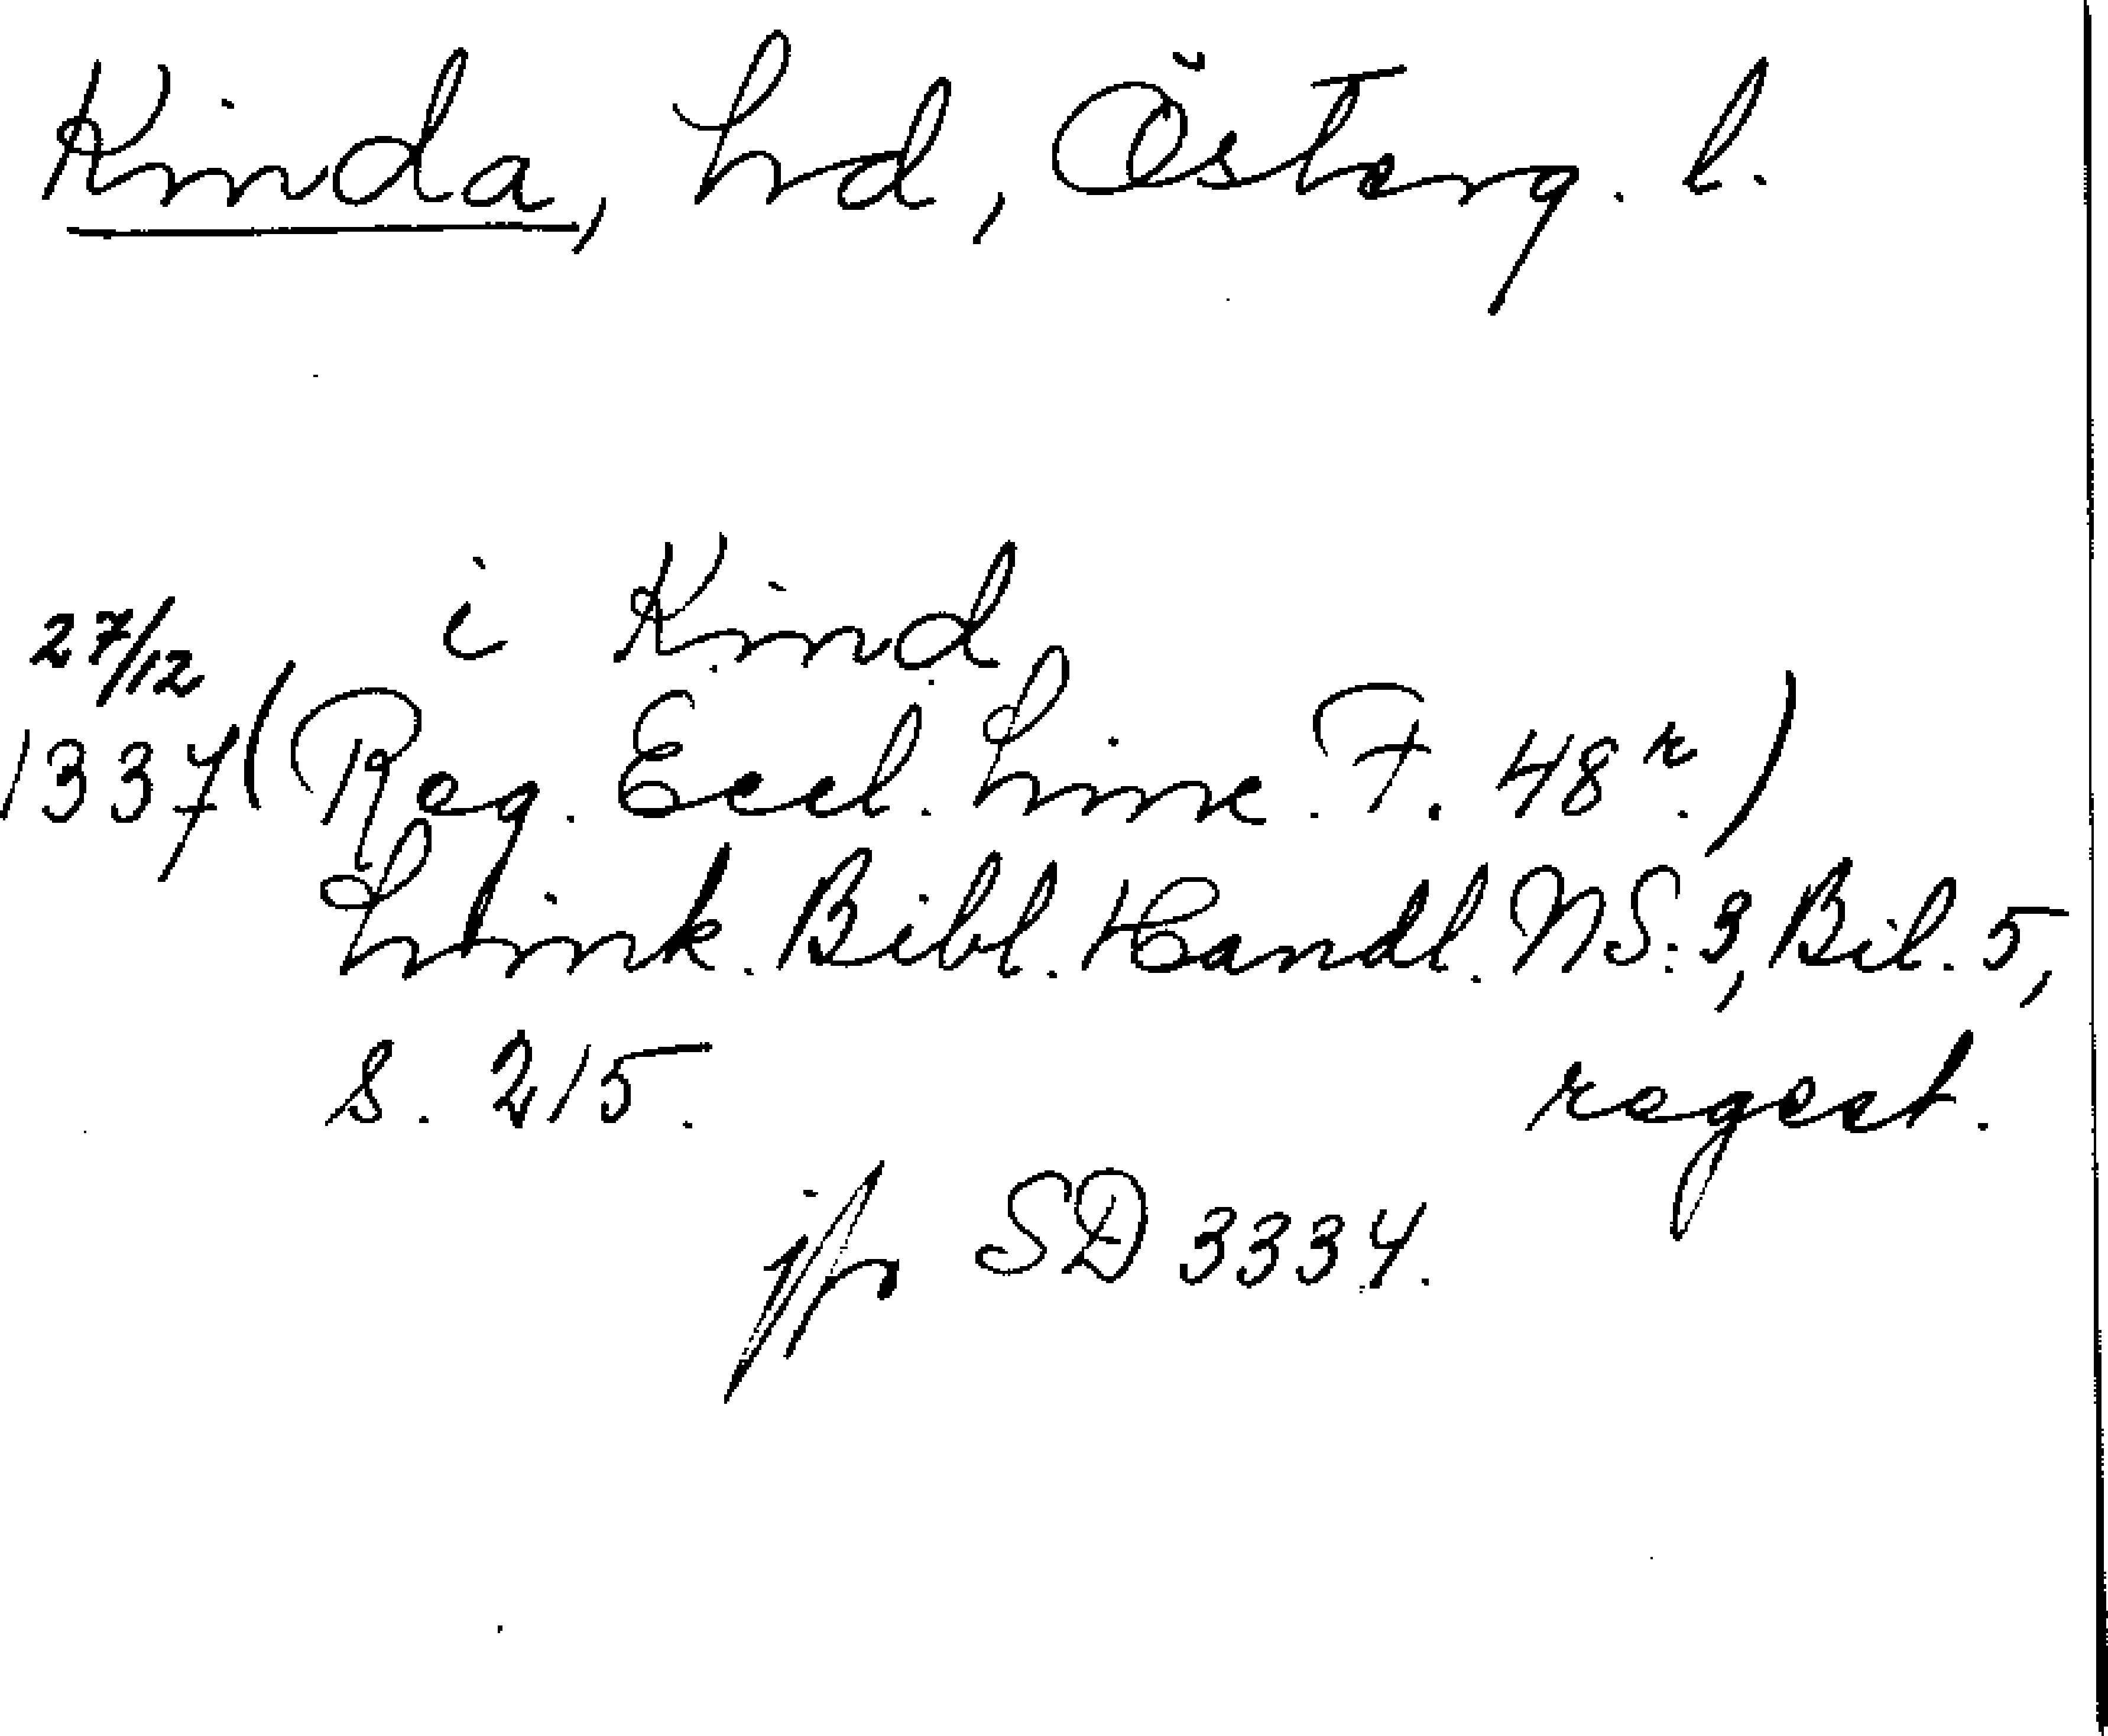 Kinda, hd, Österg. l.
i Kind
27/12
1337 (Reg. Eccl. Linc. F. 48 r.)
Link. Bibl. Handl. NS: 3, Bil. 5,
s. 215. regest.
jfr SD 3334.